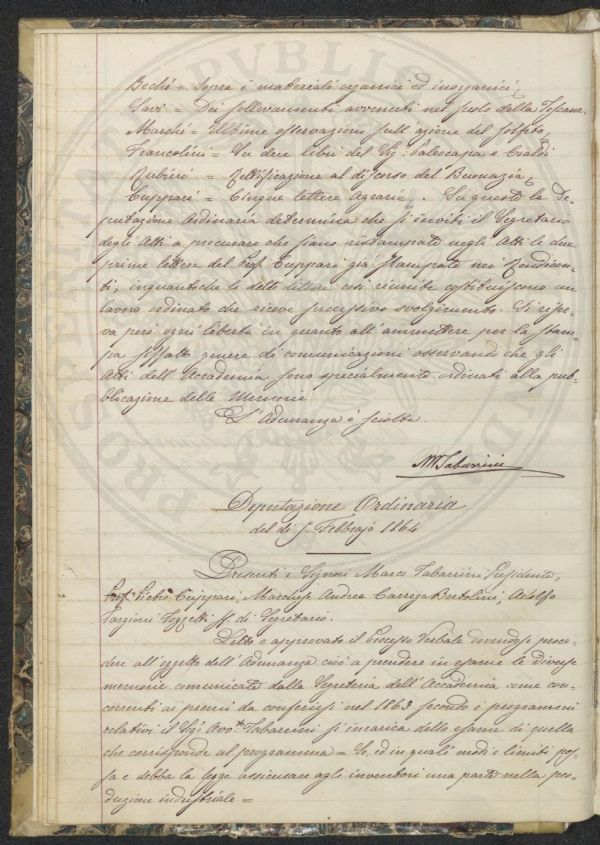 Bechi = Sopra i materiali organici ed inorganici
Savi = Dei sollevamenti avvenuti nel suolo della Toscana.
Marchi = Ultime osservazioni sull'azione del solfito
Francolini = Su due libri del Sig: Paleocapa e Cialdi
Rubieri = Rettificazione al discorso del Buonazia
Cuppari = Cinque lettere Agrarie. Su questo la De-
putazione Ordinaria determina che si inviti il Segretario
degli Atti a procurare che siano ristampate negli Atti le due
prime lettere del Prof. Cuppari già stampate nei Rendicon-
ti, inquantoche le dette lettere così riunite costituiscono un
lavoro ordinato che riceve successivo svolgimento. Si riser-
va però ogni libertà in quanto all'ammettere per la stam-
pa siffatto genere di comunicazioni osservando che gli
Atti dell'Accademia sono specialmente ordinati alla pub-
blicazione delle Memorie
L'Adunanza è sciolta.
M Tabarrini
Deputazione Ordinaria
del dì 5. Febbrajo 1864
Presenti i Signori Marco Tabarrini Presidente,
Prof. Pietro Cuppari, Marchese Andrea Carrega Bertolini, Adolfo
Targioni Tozzetti ff. di Segretario.
Letto e approvato il Processo Verbale dovendosi proce-
dere all'oggetto dell'Adunanza cioè a prendere in esame le diverse
memorie comunicate dalla Segreteria dell'Accademia come con-
correnti ai premi da conferirsi nel 1863 secondo i programmi
relativi il Sig: Avv.to Tabarrini si incarica dello esame di quella
che corrisponde al programma = Se, ed in quali modi e limiti pos-
sa e debba la legge assicurare agli inventori una parte nella pro-
duzione industriale =
PROSPERITATI PUBLICAE